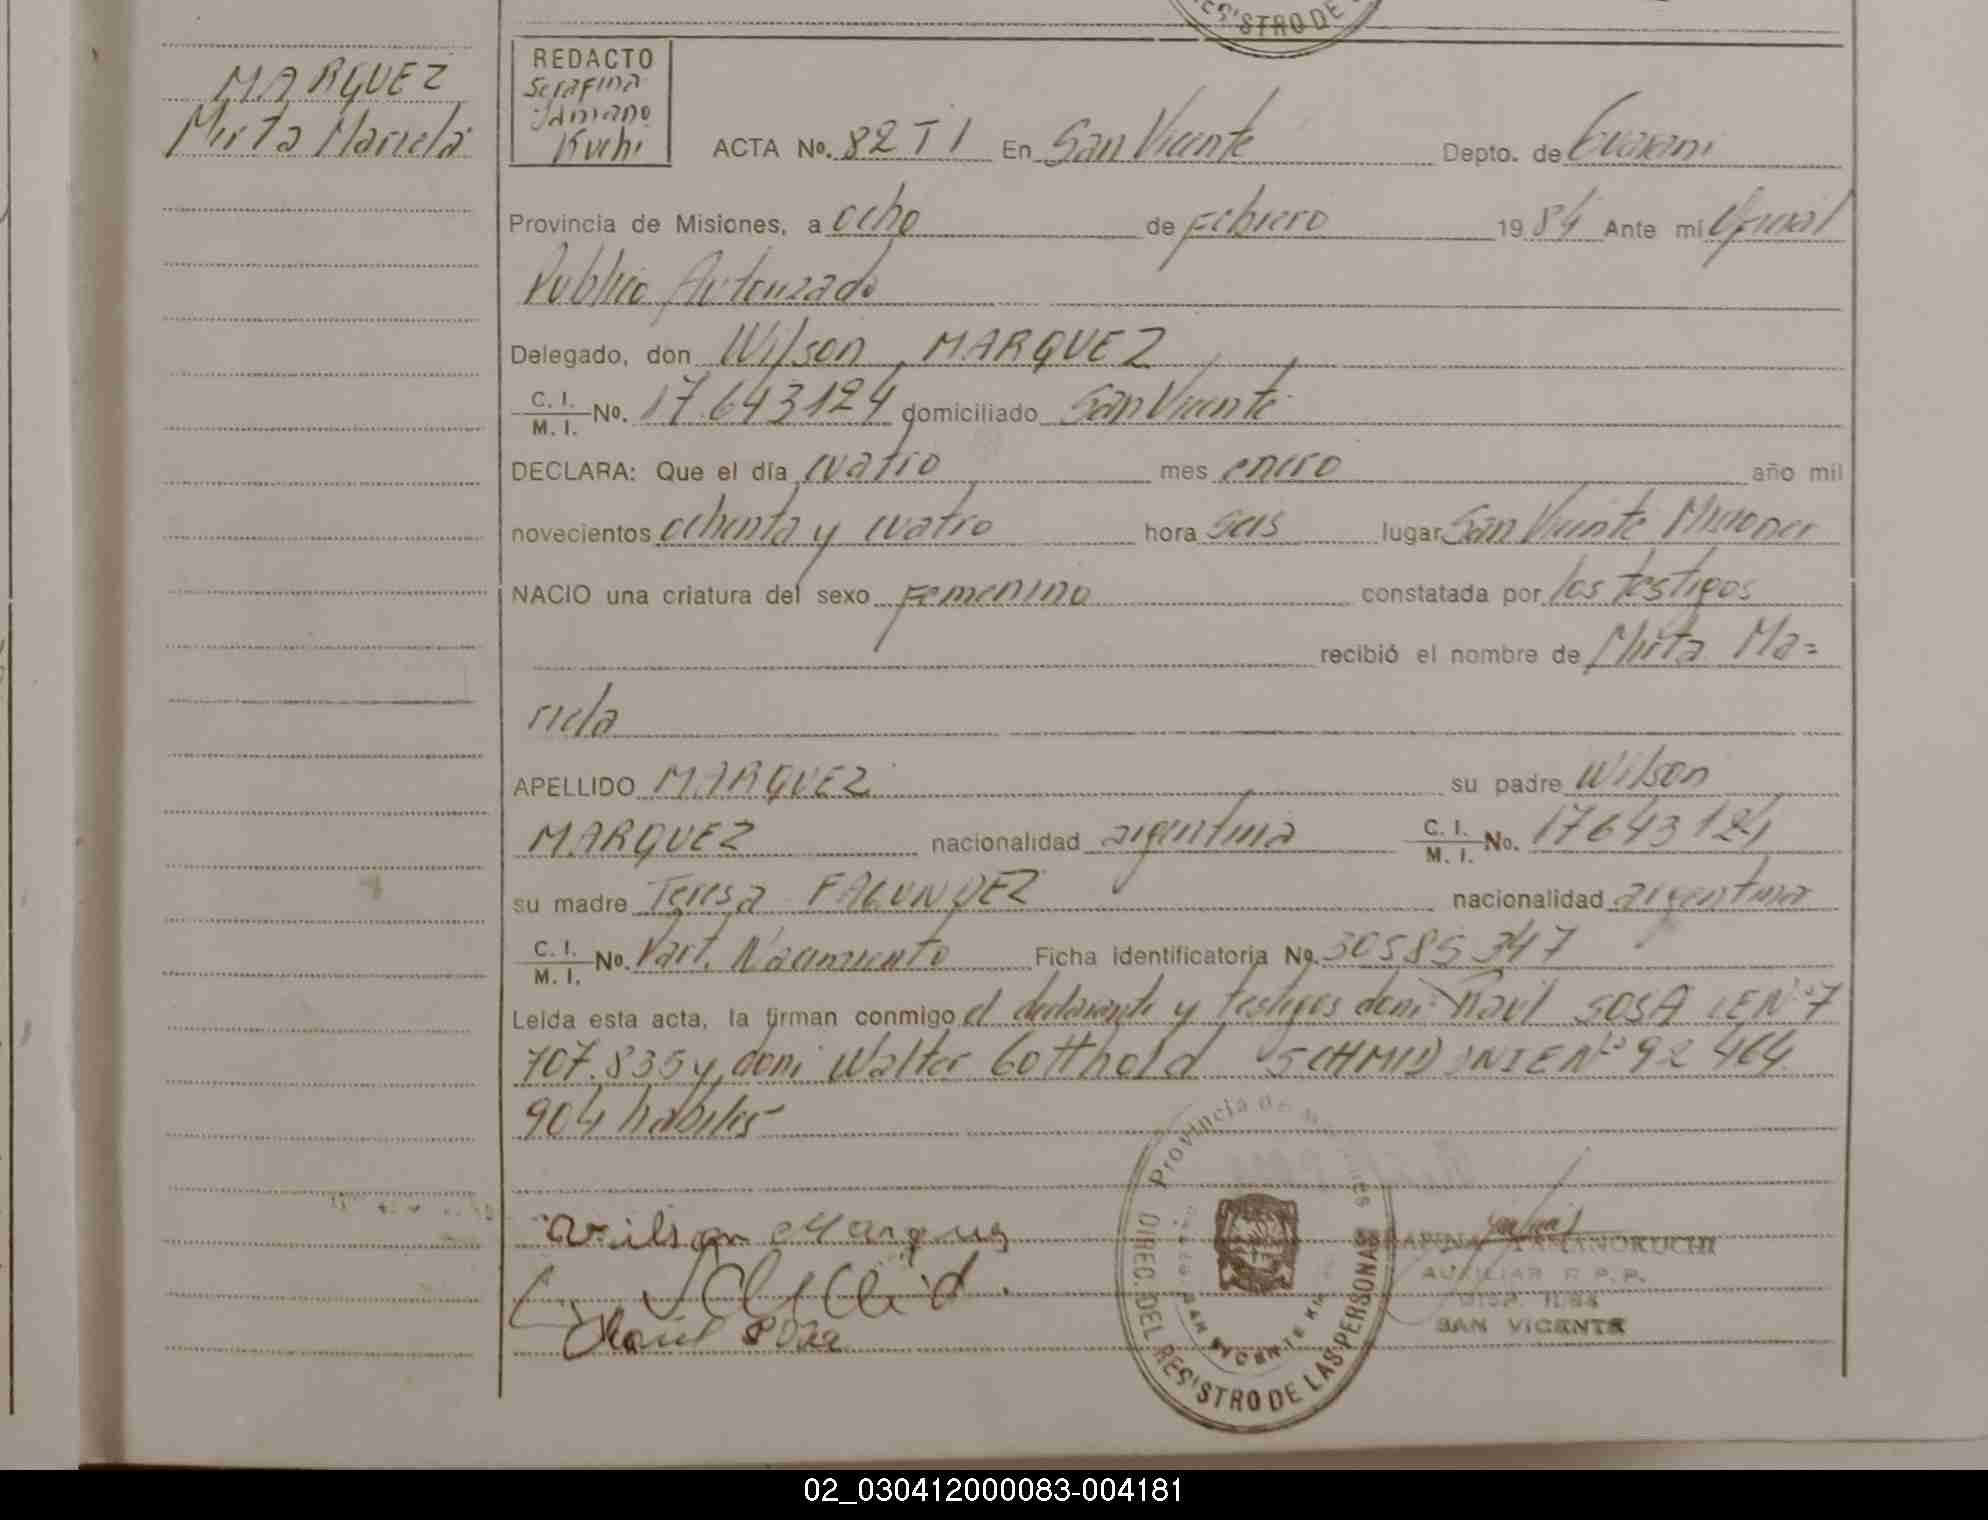 MARQUEZ
Mirta Mariela
REDACTO
Serafina
Yamano
Kuchi
ACTA No. 82 T I En San Vicente Depto. de Guarani
Provincia de Misiones, a ocho de Febrero 1984 Ante mí Oficial
Publico Autorizado
Delegado, don Wilson MARQUEZ
C. I. / M. I. No. 17.643124 domiciliado San Vicente
DECLARA: Que el día cuatro mes enero año mil
novecientos ochenta y cuatro hora seis lugar San Vicente Misiones
NACIO una criatura del sexo Femenino constatada por los testigos
recibió el nombre de Mirta Ma=
riela
APELLIDO MARQUEZ su padre Wilson
MARQUEZ nacionalidad argentina C. I. / M. I. No. 17643124
su madre Teresa FAGUNDEZ nacionalidad argentina
C. I. / M. I. No. Part. Nacimiento Ficha identificatoria No. 30585347
Leida esta acta, la firman conmigo el declarante y testigos don: Raúl SOSA LEN° 7
707.835 y don: Walter Gotthold SCHMID DNIEN° 92 464.
904 habiles
Wilson Marques
Raul Sosa
Provincia de Misiones
DIREC. DEL REGISTRO DE LAS PERSONAS
SAN VICENTE
SERAFINA YAMANOKUCHI
AUXILIAR R.P.P.
SAN VICENTE
REGISTRO DE
02_030412000083-004181